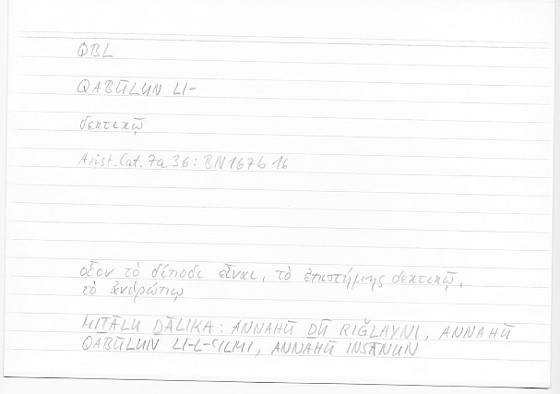 QBL
QABŪLUN LI-
δεκτικῷ
Arist. Cat. 7a 36: BN 167b 16
οἷον τὸ δίποδι εἶναι, τὸ ἐπιστήμης δεκτικῷ,
τὸ ἀνθρώπῳ
MIṮĀLU ḎĀLIKA: ANNAHŪ ḎŪ RIǦLAYNI, ANNAHŪ
QABŪLUN LI-L-ʿILMI, ANNAHŪ INSĀNUN